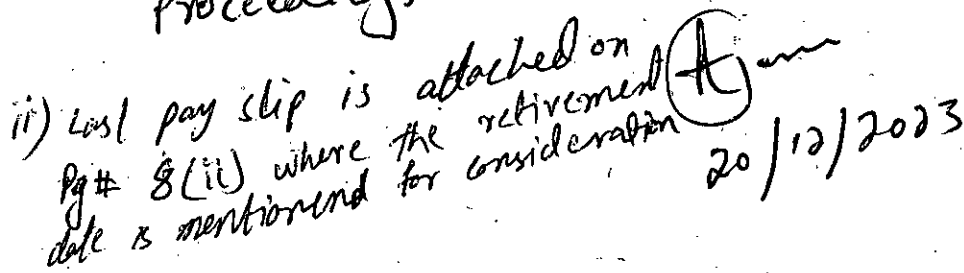 Proceedings
ii) Last pay slip is attached on
Pg# 8(ii) where the retirement
date is mentionend for consideration
20/12/2023